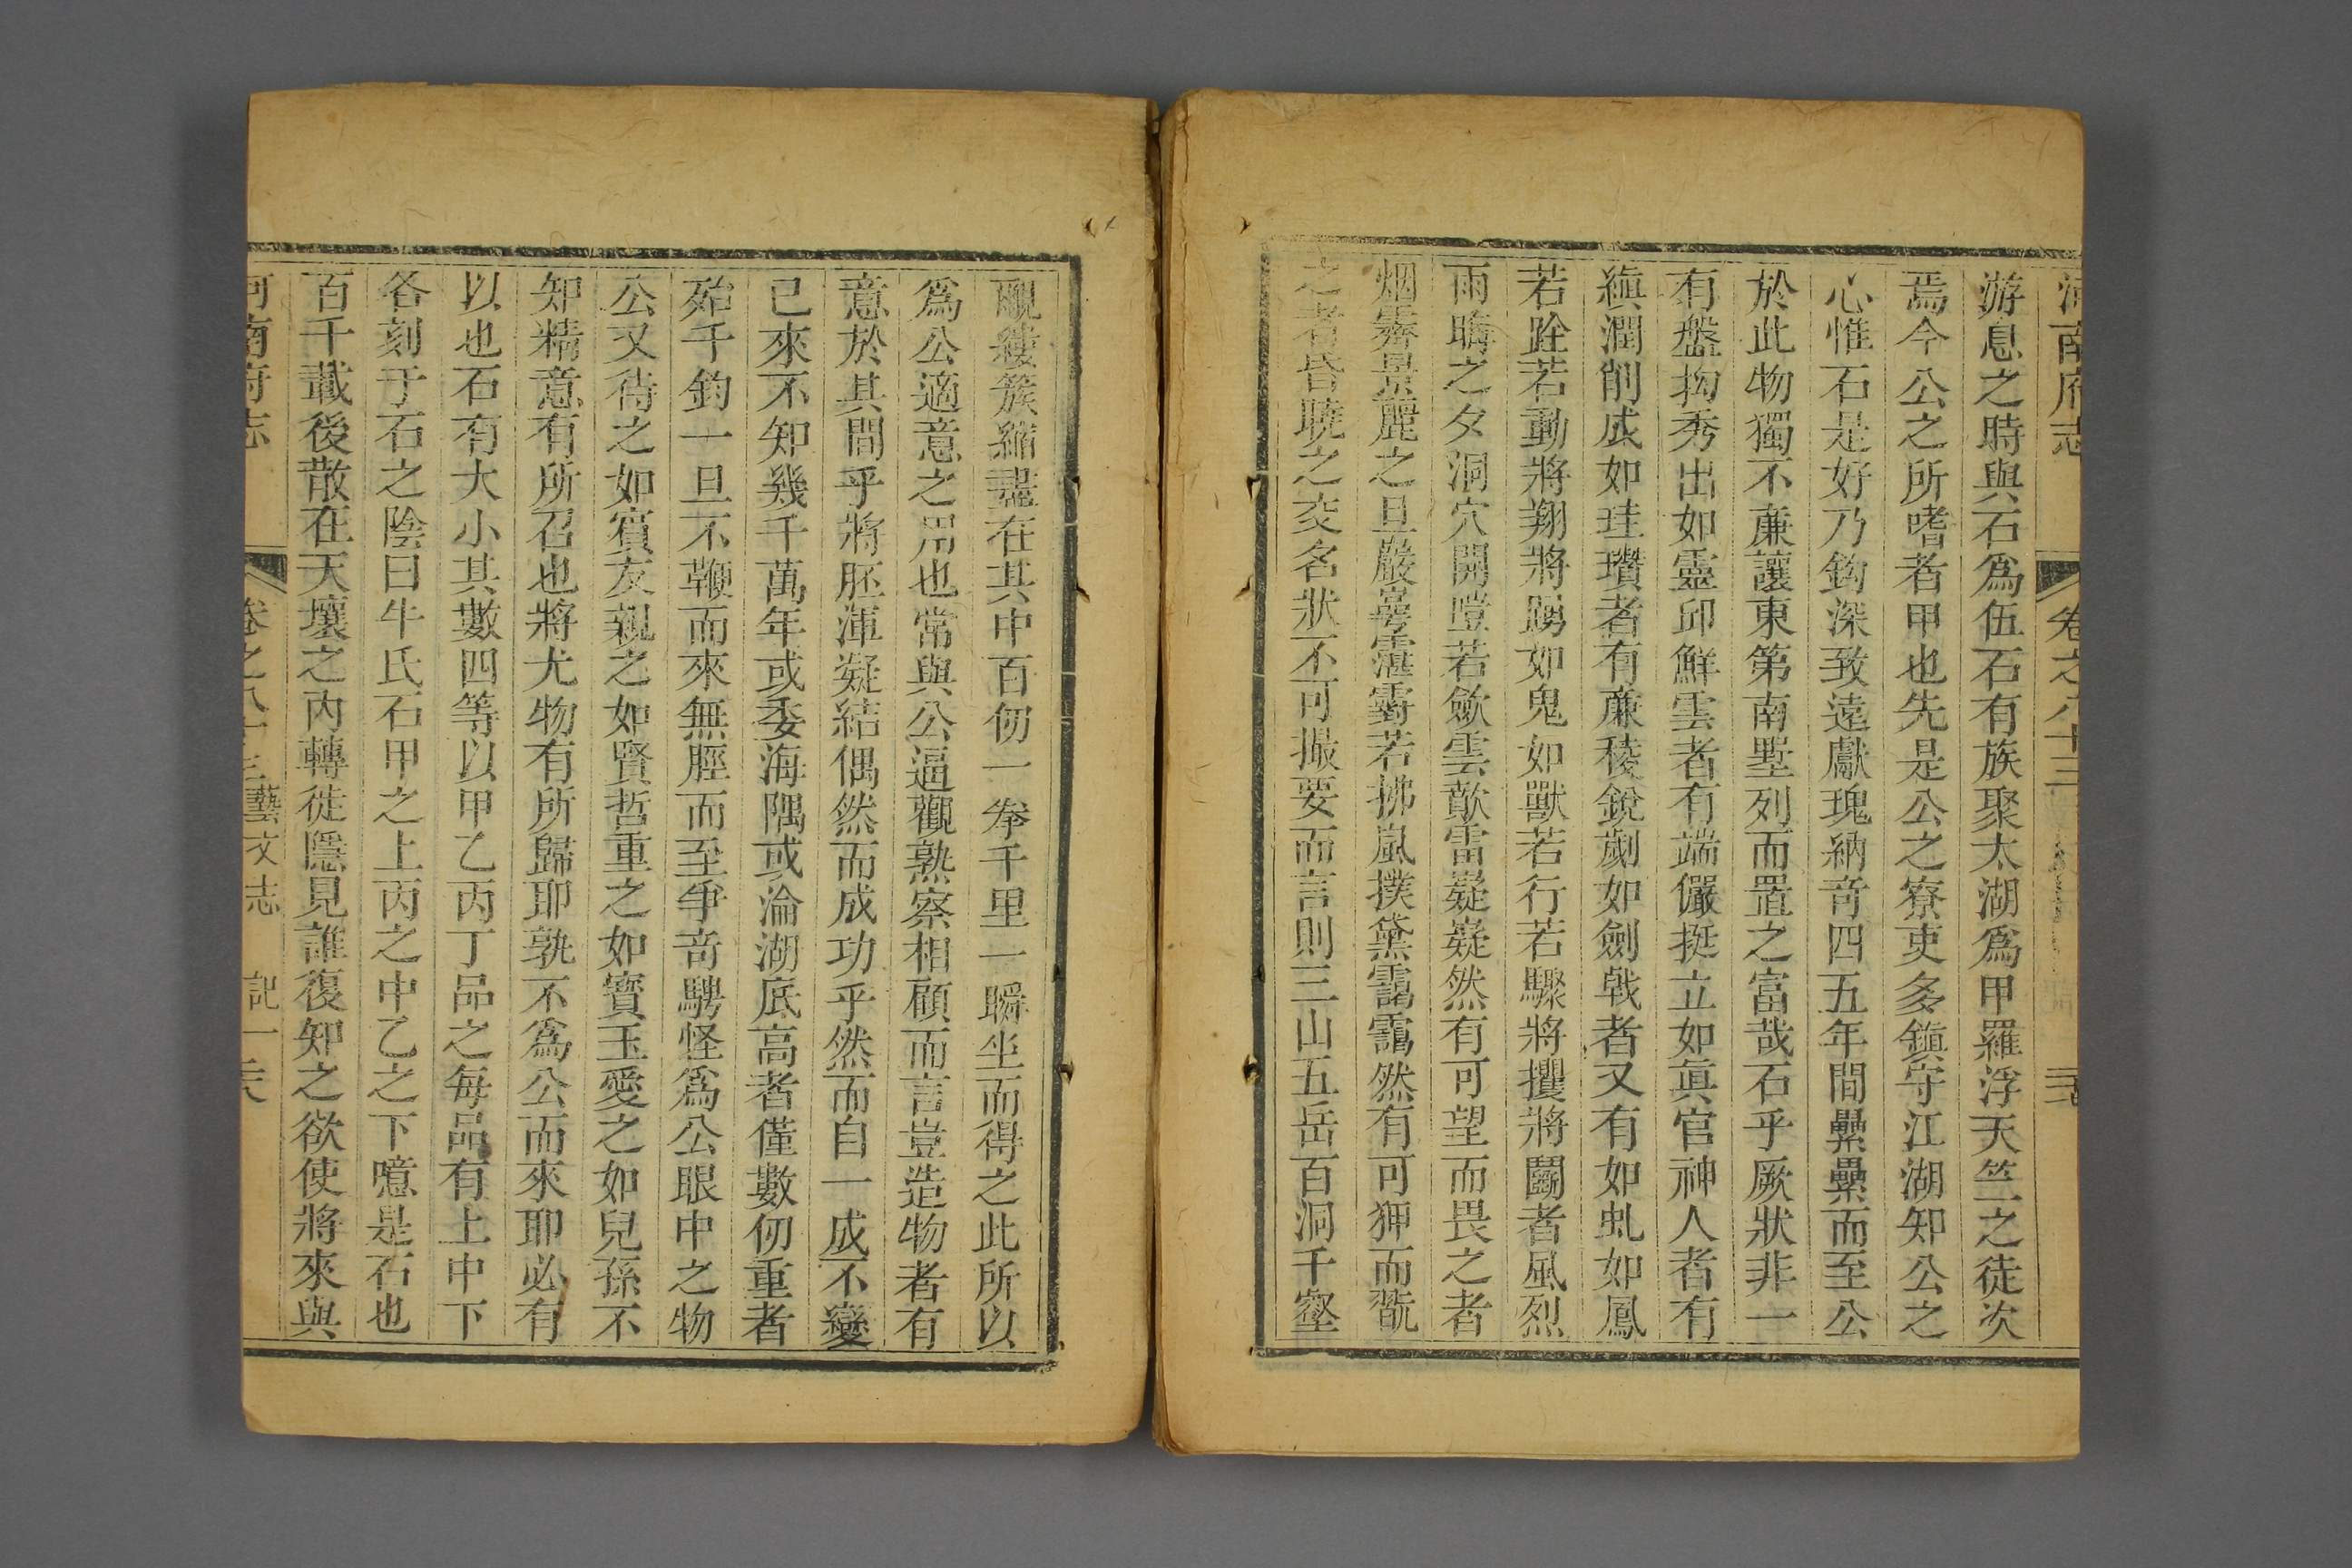 河南府志 卷之八十三
游息之時與石為伍石有族聚太湖為甲羅浮天竺之徒次
焉今公之所嗜者甲也先是公之寮吏多鎮守江湖知公之
心惟石是好乃鈎深致遠獻瑰納奇四五年間纍纍而至公
於此物獨不廉讓東第南墅列而置之富哉石乎厥狀非一
有盤拗秀出如靈邱鮮雲者有端儼挺立如真官神人者有
縝潤削成如珪瓚者有廉稜銳劌如劍戟者又有如虬如鳳
若跧若動將翔將踴如鬼如獸若行若驟將攫將鬬者風烈
雨晦之夕洞穴開皚若歛雲歕雷嶷嶷然有可望而畏之者
烟霽景麗之旦巖㟧霮䨴若拂嵐撲黛靄靄然有可狎而翫
之者昏曉之交名狀不可撮要而言則三山五岳百洞千壑
覼縷簇縮盡在其中百仞一拳千里一瞬坐而得之此所以
為公適意之用也常與公逼觀熟察相顧而言豈造物者有
意於其間乎將胚渾凝結偶然而成功乎然而自一成不變
已來不知幾千萬年或委海隅或淪湖底高者僅數仞重者
殆千鈞一旦不鞭而來無脛而至爭奇騁怪為公眼中之物
公又待之如賓友親之如賢哲重之如寶玉愛之如兒孫不
知精意有所召也將尤物有所歸耶孰不為公而來耶必有
以也石有大小其數四等以甲乙丙丁品之每品有上中下
各刻于石之陰曰牛氏石甲之上丙之中乙之下噫是石也
百千載後散在天壤之內轉徙隱見誰復知之欲使將來與
河南府志 卷之八十三藝文志 記一